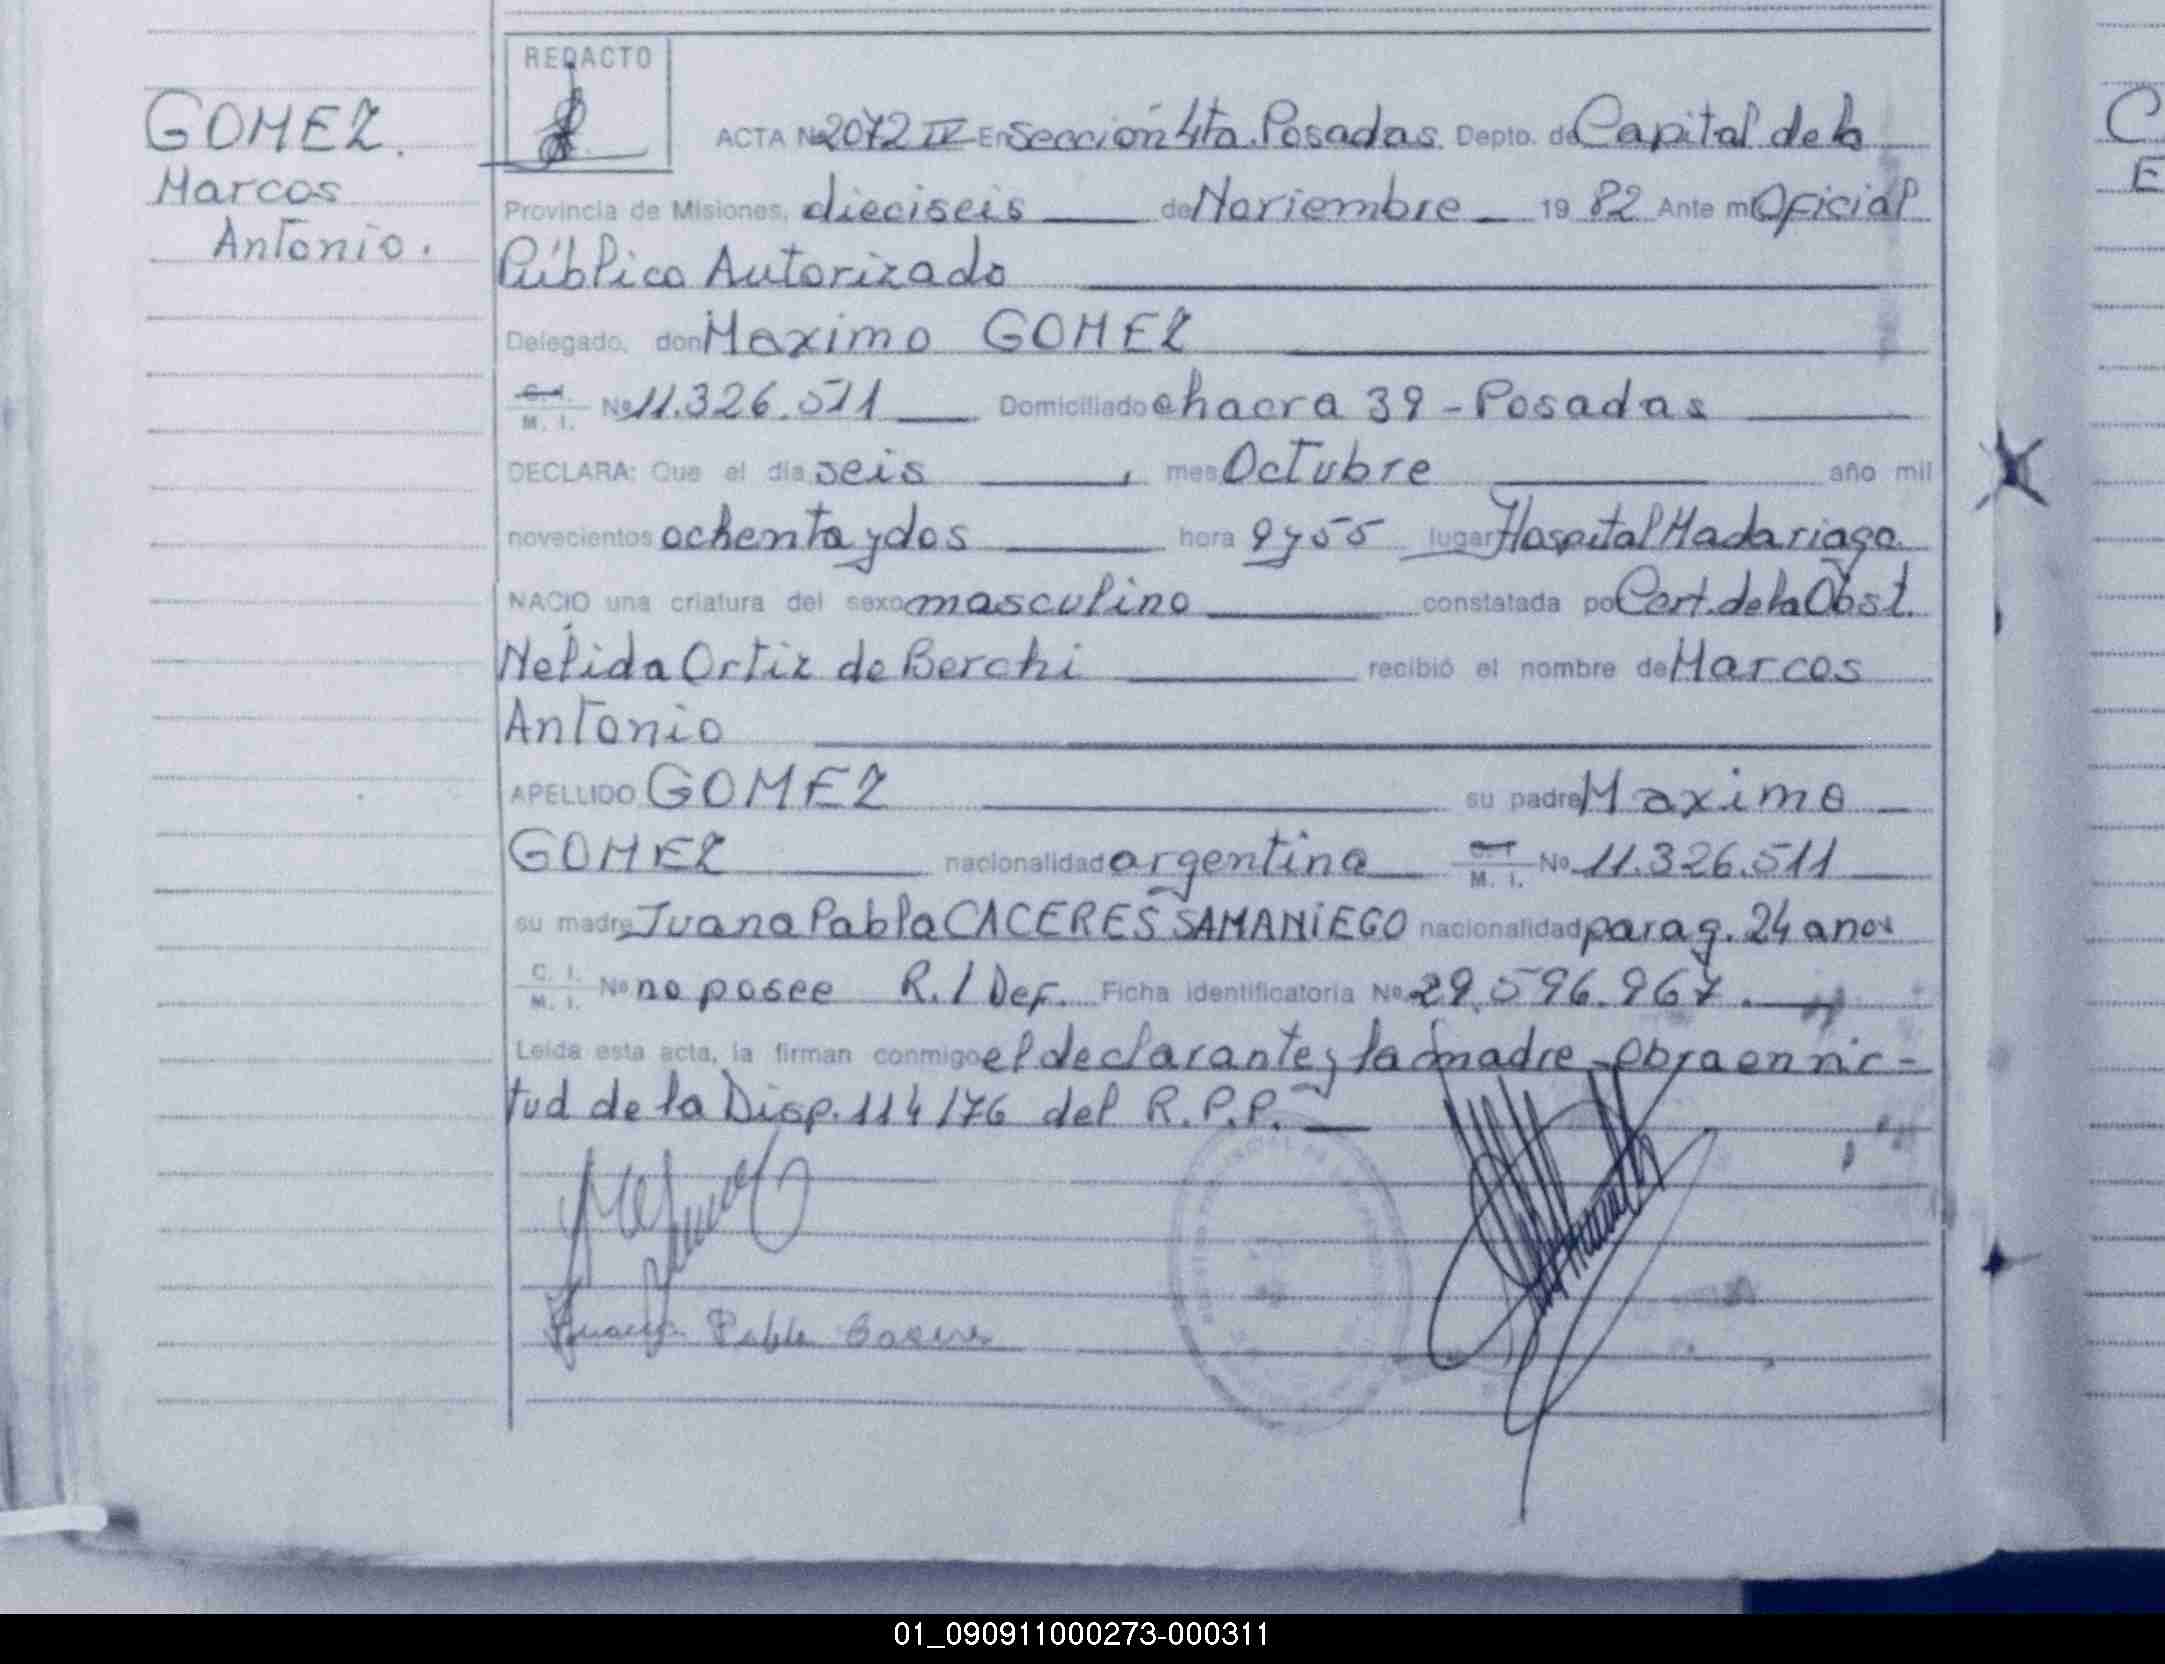 GOMEZ.
Marcos
Antonio.
REDACTO
ACTA Nº 2072 IV En Sección 4ta. Posadas. Depto. de Capital de la
Provincia de Misiones, dieciseis de Noviembre 19 82 Ante mi Oficial
Público Autorizado
Delegado, don Maximo GOMEZ
C.I. M. I. Nº 11.326.511 Domiciliado chacra 39 - Posadas
DECLARA: Que el día seis, mes Octubre año mil
novecientos ochenta y dos hora 9 y 55 lugar Hospital Madariaga
NACIO una criatura del sexo masculino constatada por Cert. de la Obst.
Nelida Ortiz de Berchi recibió el nombre de Marcos
Antonio
APELLIDO GOMEZ su padre Maximo
GOMEZ nacionalidad argentina C.I. M. I. Nº 11.326.511
su madre Juana Pabla CACERES SAMANIEGO nacionalidad parag. 24 años
C. I. M. I. Nº no posee R. / Def. Ficha identificatoria Nº 29.596.967.
Leída esta acta, la firman conmigo el declarante y la madre - obra en vir-
tud de la Disp. 114/76 del R.P.P.
Juana Pabla Caceres
C
E
01_090911000273-000311